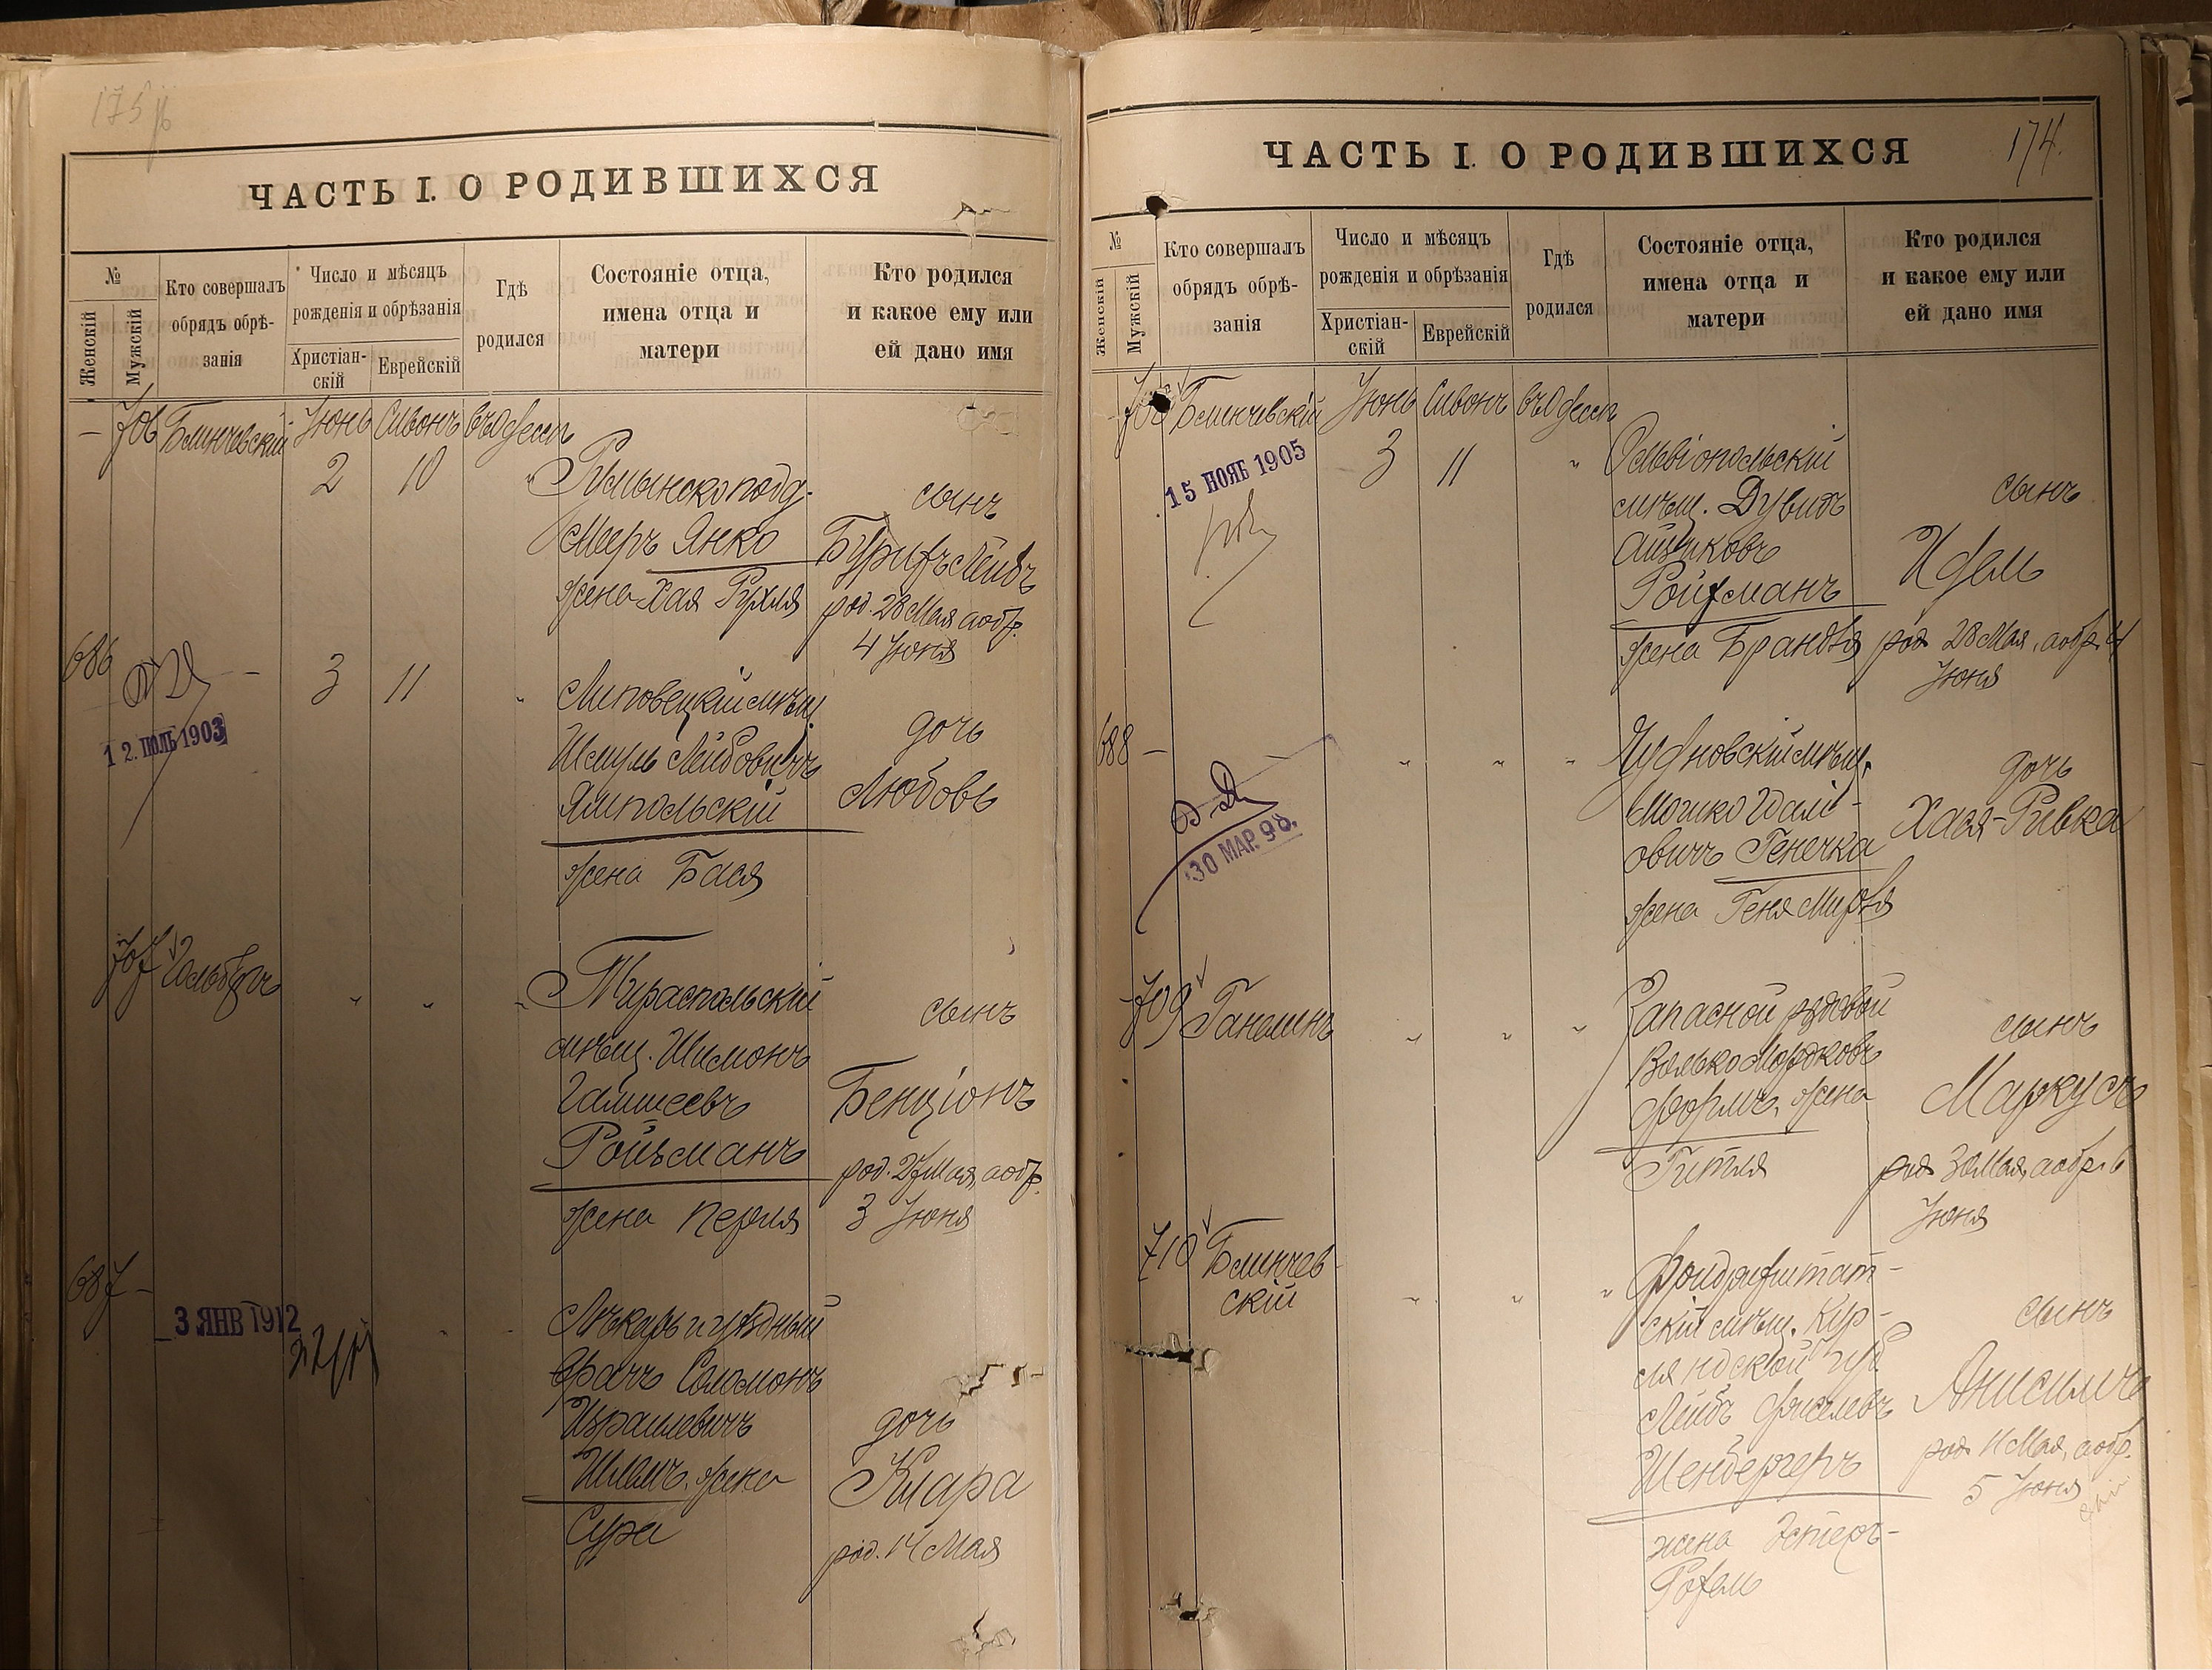 175 
ЧАСТЬ I. О РОДИВШИХСЯ
№
Женскій
Мужскій
Кто совершалъ
обрядъ обрѣ-
занія
Число и мѣсяцъ
рожденія и обрѣзанія
Христіан-
скій
Еврейскій
Гдѣ
родился
Состояніе отца,
имена отца и
матери
Кто родился
и какое ему или
ей дано имя
— 706 Блинчевскій Іюнь Сивонъ въ Одессѣ
2 10 " Румынско подд.
Мееръ Янко
жена Хая Рухля
сынъ
Бурихъ Лейбъ
род. 28 Мая, а обр.
4 Іюня
686 — 3 11 "
12. ІЮЛЬ 1903
Липовецкій мѣщ.
Шмуль Лейбовичъ
Ямпольскій
жена Бася
дочь
Любовь
707 " " "
Тираспольскій
мѣщ. Шимонъ
Ройзманъ
жена Перля
сынъ
Бенціонъ
род. 27 Мая, а обр.
3 Іюня
687 — " "
3 ЯНВ 1912
Лѣкарь и уѣздный
врачъ Соломонъ
Израилевичъ
жена
Сура
дочь
Клара
род. 14 Мая
174.
ЧАСТЬ I. О РОДИВШИХСЯ
№
Женскій
Мужскій
Кто совершалъ
обрядъ обрѣ-
занія
Число и мѣсяцъ
рожденія и обрѣзанія
Христіан-
скій
Еврейскій
Гдѣ
родился
Состояніе отца,
имена отца и
матери
Кто родился
и какое ему или
ей дано имя
708 Блинчевскій Іюнь Сивонъ въ Одессѣ
3 11 "
15 НОЯБ 1905
Ольвіопольскій
мѣщ. Дувидъ
Айзиковъ
Ройхманъ
жена Брандля
сынъ
Идель
род. 28 Мая, а обр. 4
Іюня
688 — " " "
30 МАР. 98.
Чудновскій мѣщ.
Мошко
овичъ Генечка
жена Геня Мирля
дочь
Хася-Ривка
709 Ганелинъ " " "
Запасной рядовой
Волько Мордковъ
жена
Гитля
сынъ
Маркусъ
род. 30 Мая, а обр. 6
Іюня
710 Блинчев-
скій
" " "
Фридрихштат-
скій мѣщ. Кур-
ляндской губ.
Лейбъ Фиселевъ
Шенбергеръ
жена Эстеръ-
Рохель
сынъ
Анисимъ
род. 11 Мая, а обр.
5 Іюня